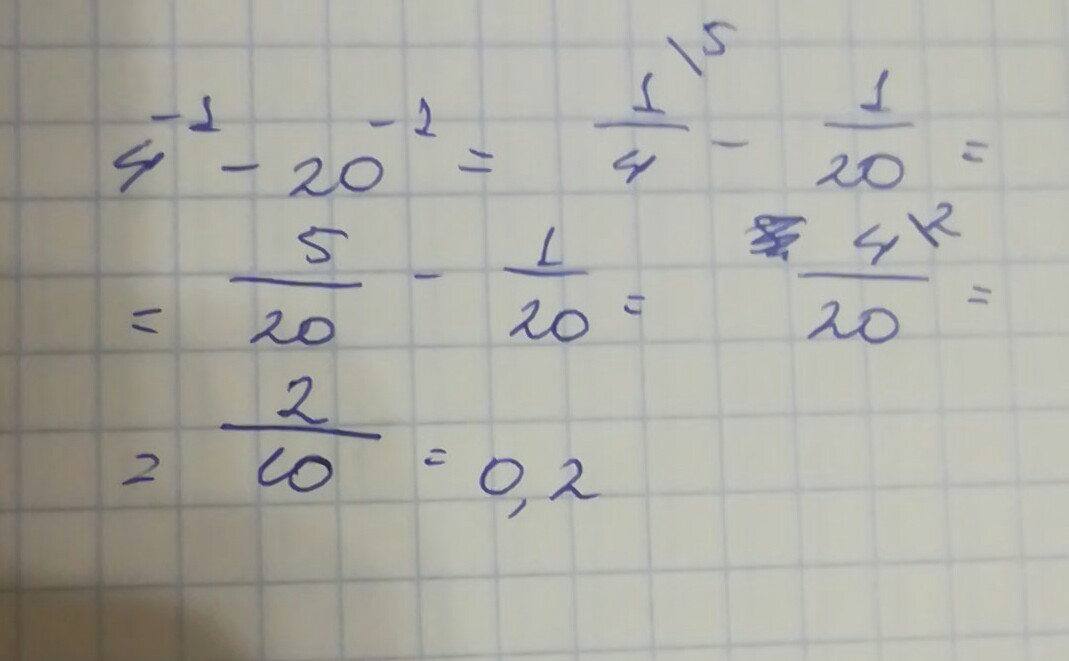 4⁻¹ - 20⁻¹ = 1/4 \5 - 1/20 =
= 5/20 - 1/20 = 4/20 \2 =
= 2/10 = 0,2